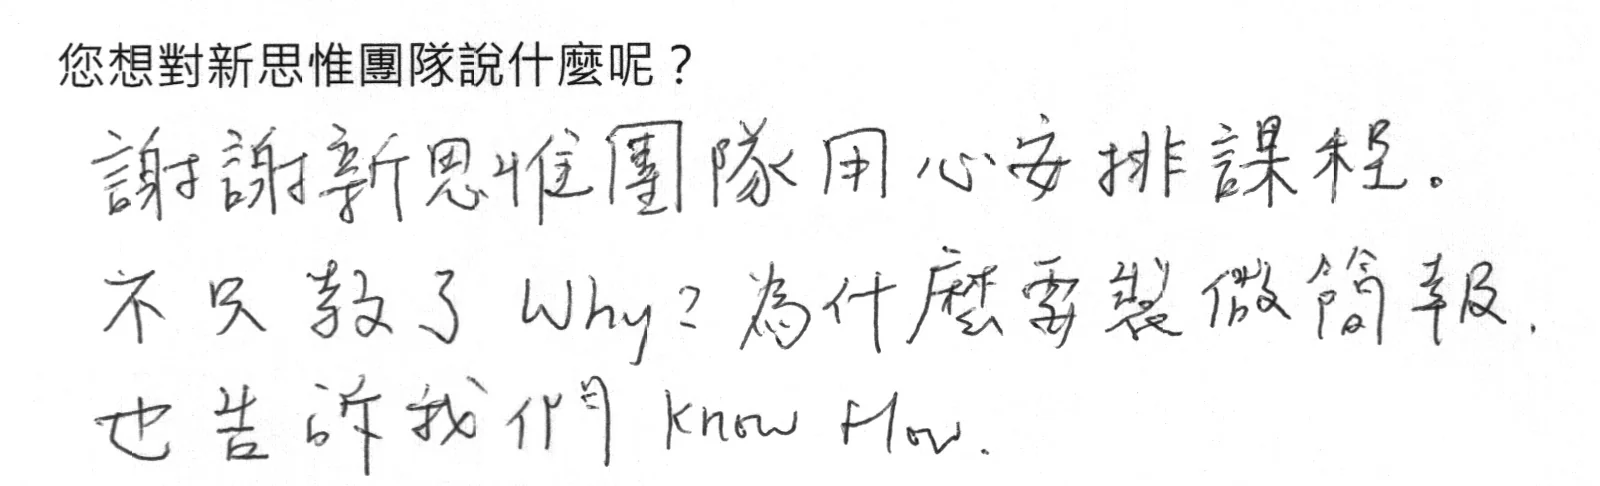 您想對新思惟團隊說什麼呢？
謝謝新思惟團隊用心安排課程。
不只教了 Why? 為什麼需製做簡報,
也告訴我們 know How.